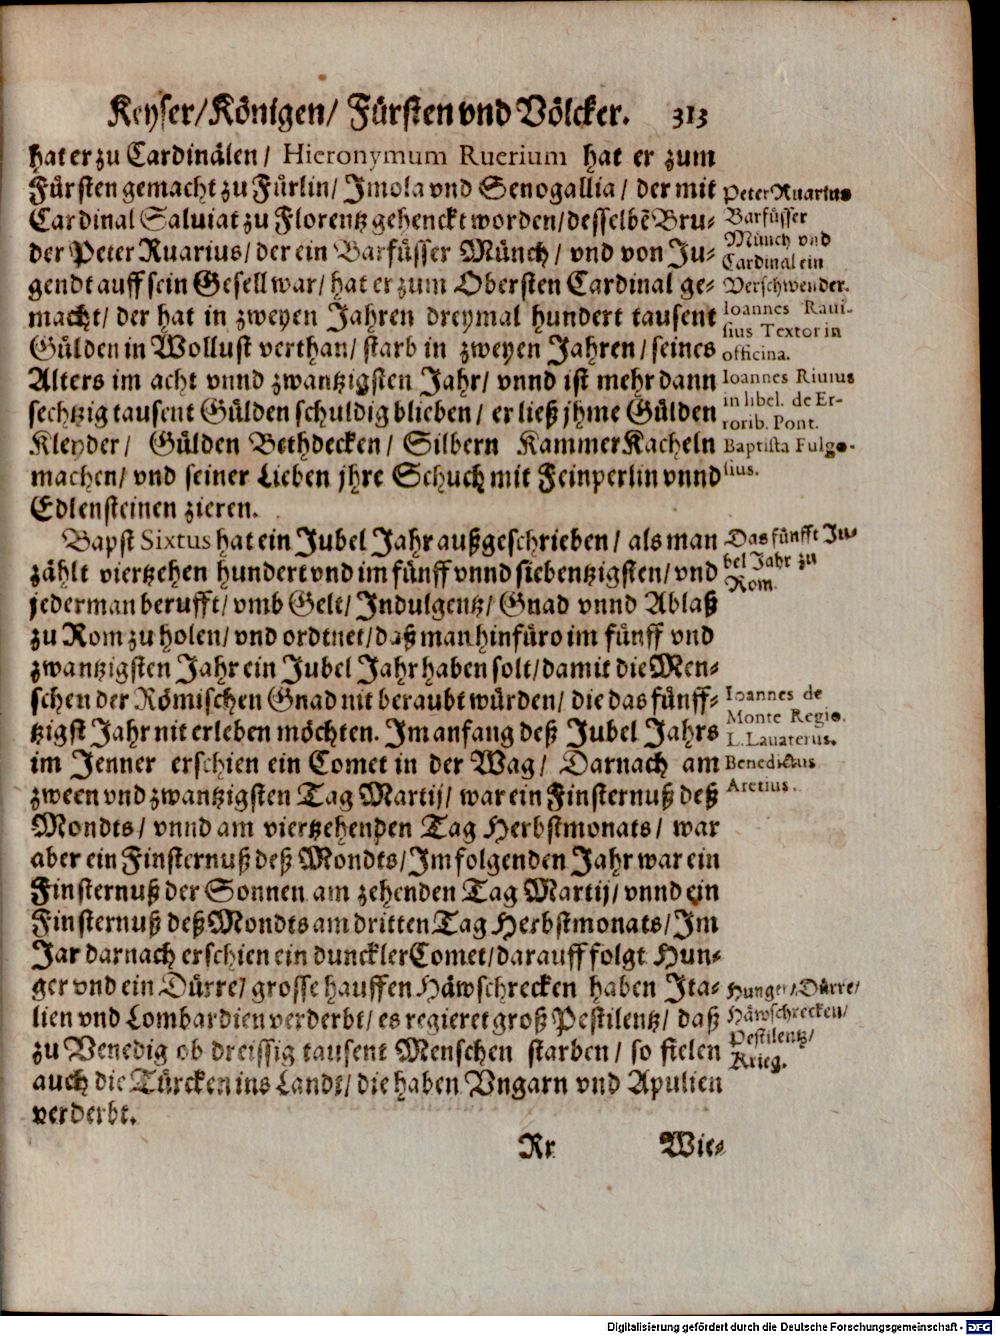 Keyser/Königen/ Fürsten vnd Völcker. 313
hat er zu Cardinälen/ Hieronymum Ruerium hat er zum
Fürsten gemacht zu Fürlin/ Imola vnd Senogallia/ der mit
Cardinal Saluiat zu Florentz gehenckt worden/desselbē Bru-
der Peter Ruarius/ der ein Barfüsser Münch/ vnd von Ju-
gendt auff sein Gesell war/ hat er zum Obersten Cardinal ge-
macht/ der hat in zweyen Jahren dreymal hundert tausent
Gülden in Wollust verthan/ starb in zweyen Jahren/ seines
Alters im acht vnnd zwantzigsten Jahr/ vnnd ist mehr dann
sechtzig tausent Gülden schuldig blieben/ er ließ jhme Gülden
Kleyder/ Gülden Bethdecken/ Silbern KammerKacheln
machen/ vnd seiner Lieben jhre Schuch mit Feinperlin vnnd
Edlensteinen zieren.
Peter Ruarius
Barfüsser
Münch vnd
Cardinal ein
Verschwender.
Ioannes Raui-
sius Textor in
officina.
Ioannes Riuius
in libel. de Er-
rorib. Pont.
Baptista Fulgo-
sius.
Bapst Sixtus hat ein Jubel Jahr außgeschrieben/ als man
zählt viertzehen hundert vnd im fünff vnnd siebentzigsten/ vnd
jederman berufft/ vmb Gelt/ Indulgentz/ Gnad vnnd Ablaß
zu Rom zu holen/ vnd ordtnet/ daß man hinfüro im fünff vnd
zwantzigsten Jahr ein Jubel Jahr haben solt/ damit die Men-
schen der Römischen Gnad nit beraubt würden/ die das fünff-
tzigst Jahr nit erleben möchten. Im anfang deß Jubel Jahrs
im Jenner erschien ein Comet in der Wag/ Darnach am
zween vnd zwantzigsten Tag Martij/ war ein Finsternuß deß
Mondts/ vnnd am viertzehenden Tag Herbstmonats/ war
aber ein Finsternuß deß Mondts/ Im folgenden Jahr war ein
Finsternuß der Sonnen am zehenden Tag Martij/ vnnd ein
Finsternuß deß Mondts am dritten Tag Herbstmonats/ Im
Jar darnach erschien ein dunckler Comet/ darauff folgt Hun-
ger vnd ein Dürre/ grosse hauffen Häwschrecken haben Ita-
lien vnd Lombardien verderbt/ es regieret groß Pestilentz/ daß
zu Venedig ob dreissig tausent Menschen starben/ so fielen
auch die Türcken ins Landt/ die haben Vngarn vnd Apulien
verderbt.
Das fünfft Ju-
bel Jahr zu
Rom.
Ioannes de
Monte Regio.
L. Lauaterus.
Benedictus
Aretius.
Hunger/ Dürre/
Häwschrecken/
Pestilentz/
Krieg.
Rr Wie-
Digitalisierung gefördert durch die Deutsche Forschungsgemeinschaft - DFG